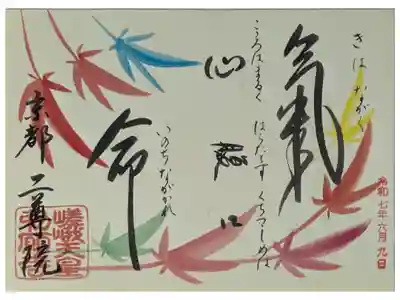 令和七年六月九日
きはながく
氣
こゝろはまるく はらたてず くちつゝしめは
心 腹 口
いのちながかれ
命
京都 二尊院